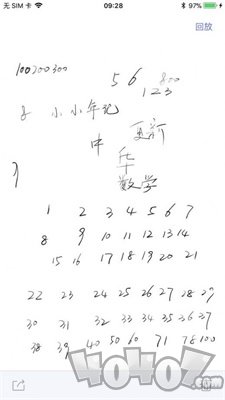 无 SIM 卡 09:28 57%
回放
100200300
5 6 800
123
小小年纪
更新
中
华
数学
1 2 3 4 5 6 7
8 9 10 11 12 13 14
15 16 17 18 19 20 21
22 23 24 25 26 27 28 29
30 31 32 33 34 35 36 37
38 39 40 50 60 71 78 100
40407.com